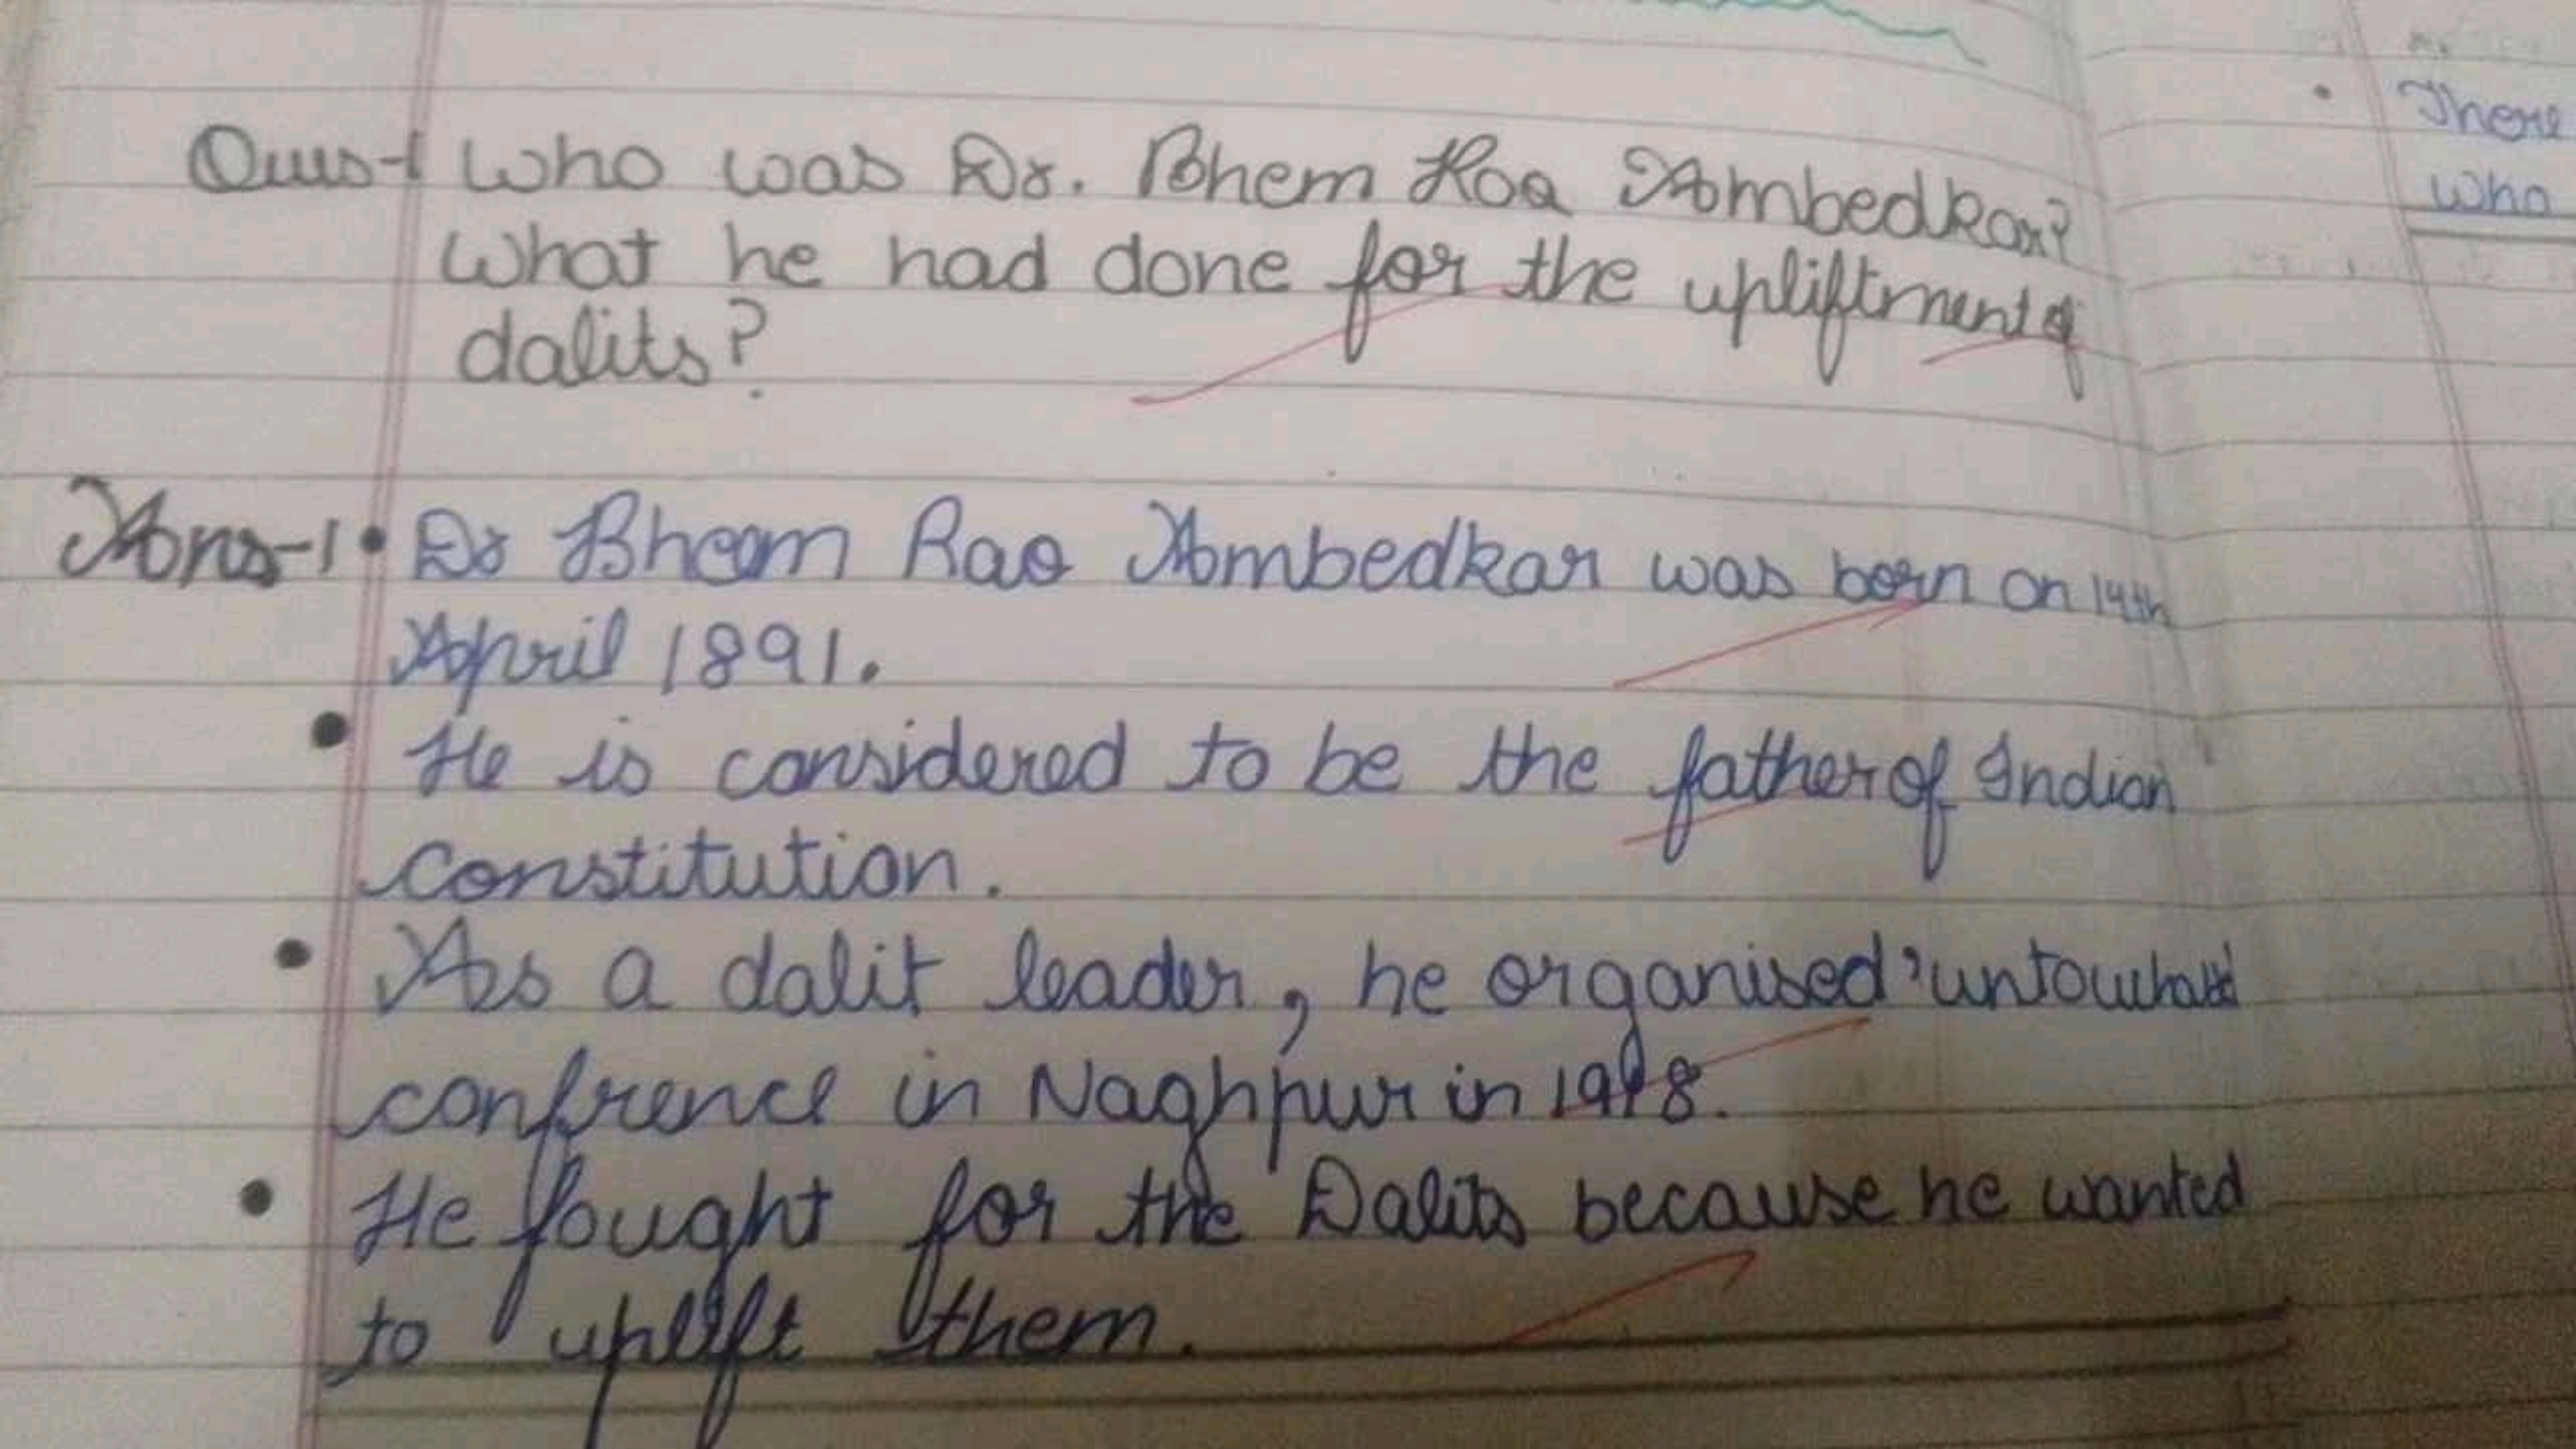 Ques-1 Who was Dr. Bhem Roa Ambedkar?
What he had done for the upliftment of
dalits?
Ans-1 • Dr Bheem Rao Ambedkar was born on 14th
April 1891.
• He is considered to be the father of Indian
constitution.
• As a dalit leader, he organised
confrence in Naghpur in
• He fought for the Dalits because he wanted
to uplift them.
• There
who